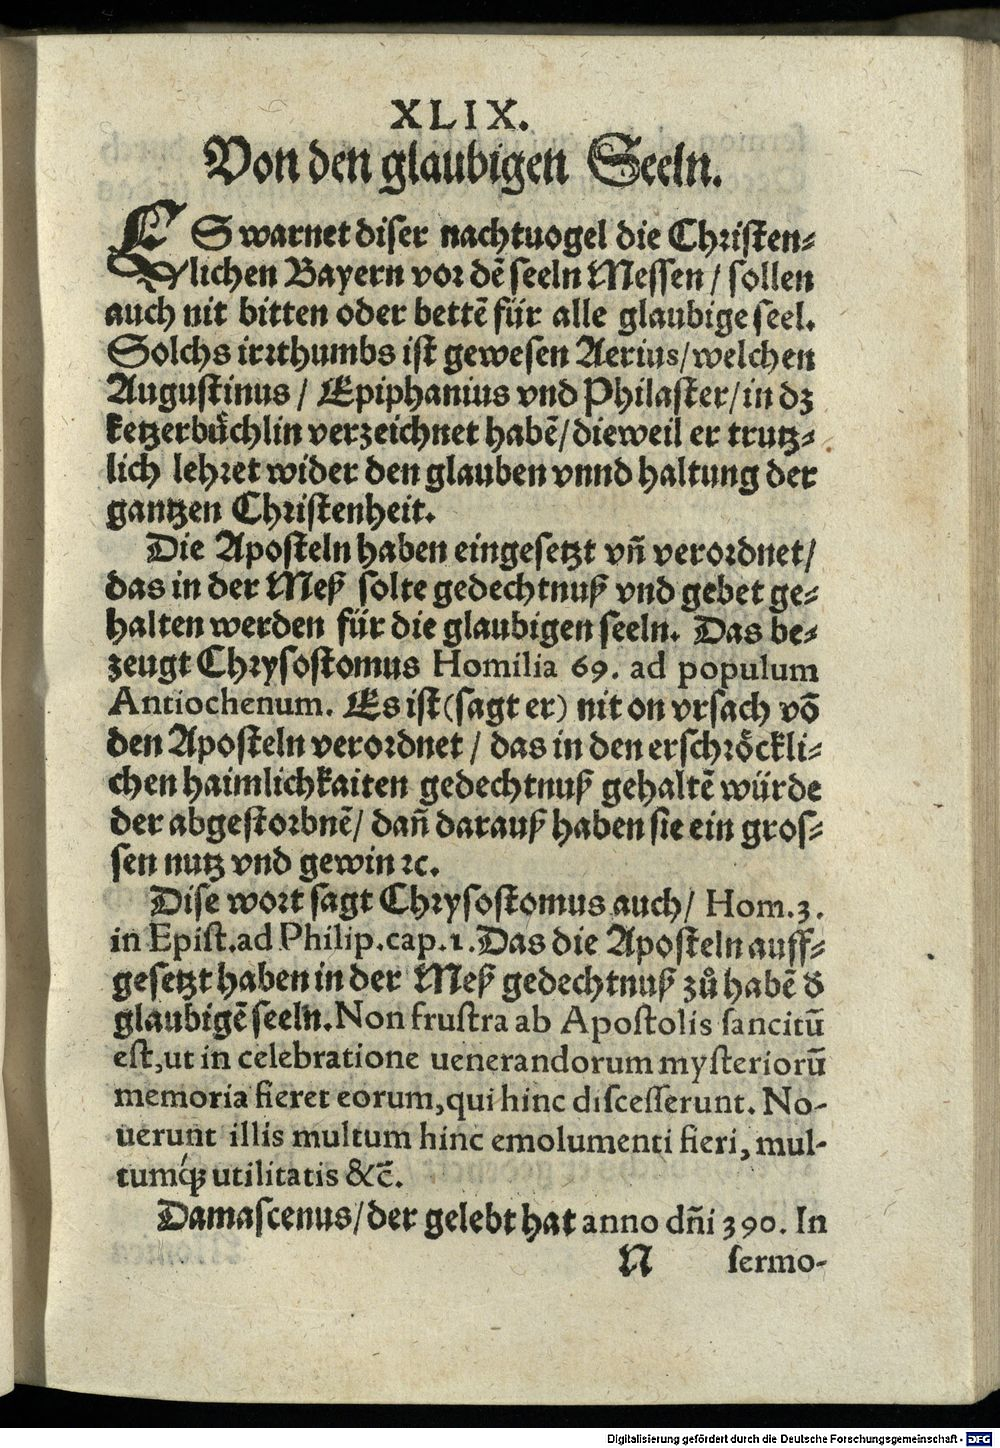 XLIX.
Von den glaubigen Seeln.
ES warnet diser nachtuogel die Christen⸗
lichen Bayern vor dē seeln Messen / sollen
auch nit bitten oder bettē für alle glaubige seel.
Solchs irrthumbs ist gewesen Aerius/welchen
Augustinus / Epiphanius vnd Philaster/in dz
ketzerbuͤchlin verzeichnet habē/dieweil er trutz⸗
lich lehret wider den glauben vnnd haltung der
gantzen Christenheit.
Die Aposteln haben eingesetzt vñ verordnet/
das in der Meß solte gedechtnuß vnd gebet ge⸗
halten werden für die glaubigen seeln. Das be⸗
zeugt Chrysostomus Homilia 69. ad populum
Antiochenum. Es ist (sagt er) nit on vrsach võ
den Aposteln verordnet / das in den erschroͤckli⸗
chen haimlichkaiten gedechtnuß gehaltē würde
der abgestorbnē/ dañ darauß haben sie ein gros⸗
sen nutz vnd gewin ꝛc.
Dise wort sagt Chrysostomus auch/ Hom.3.
in Epist.ad Philip.cap.1. Das die Aposteln auff⸗
gesetzt haben in der Meß gedechtnuß zů habē đ
glaubigē seeln. Non frustra ab Apostolis sancitū
est,ut in celebratione uenerandorum mysteriorū
memoria fieret eorum,qui hinc discesserunt. No-
uerunt illis multum hinc emolumenti fieri, mul-
tumq́ꝫ utilitatis &c̄.
Damascenus/der gelebt hat anno dñi 390. In
N sermo-
Digitalisierung gefördert durch die Deutsche Forschungsgemeinschaft - DFG